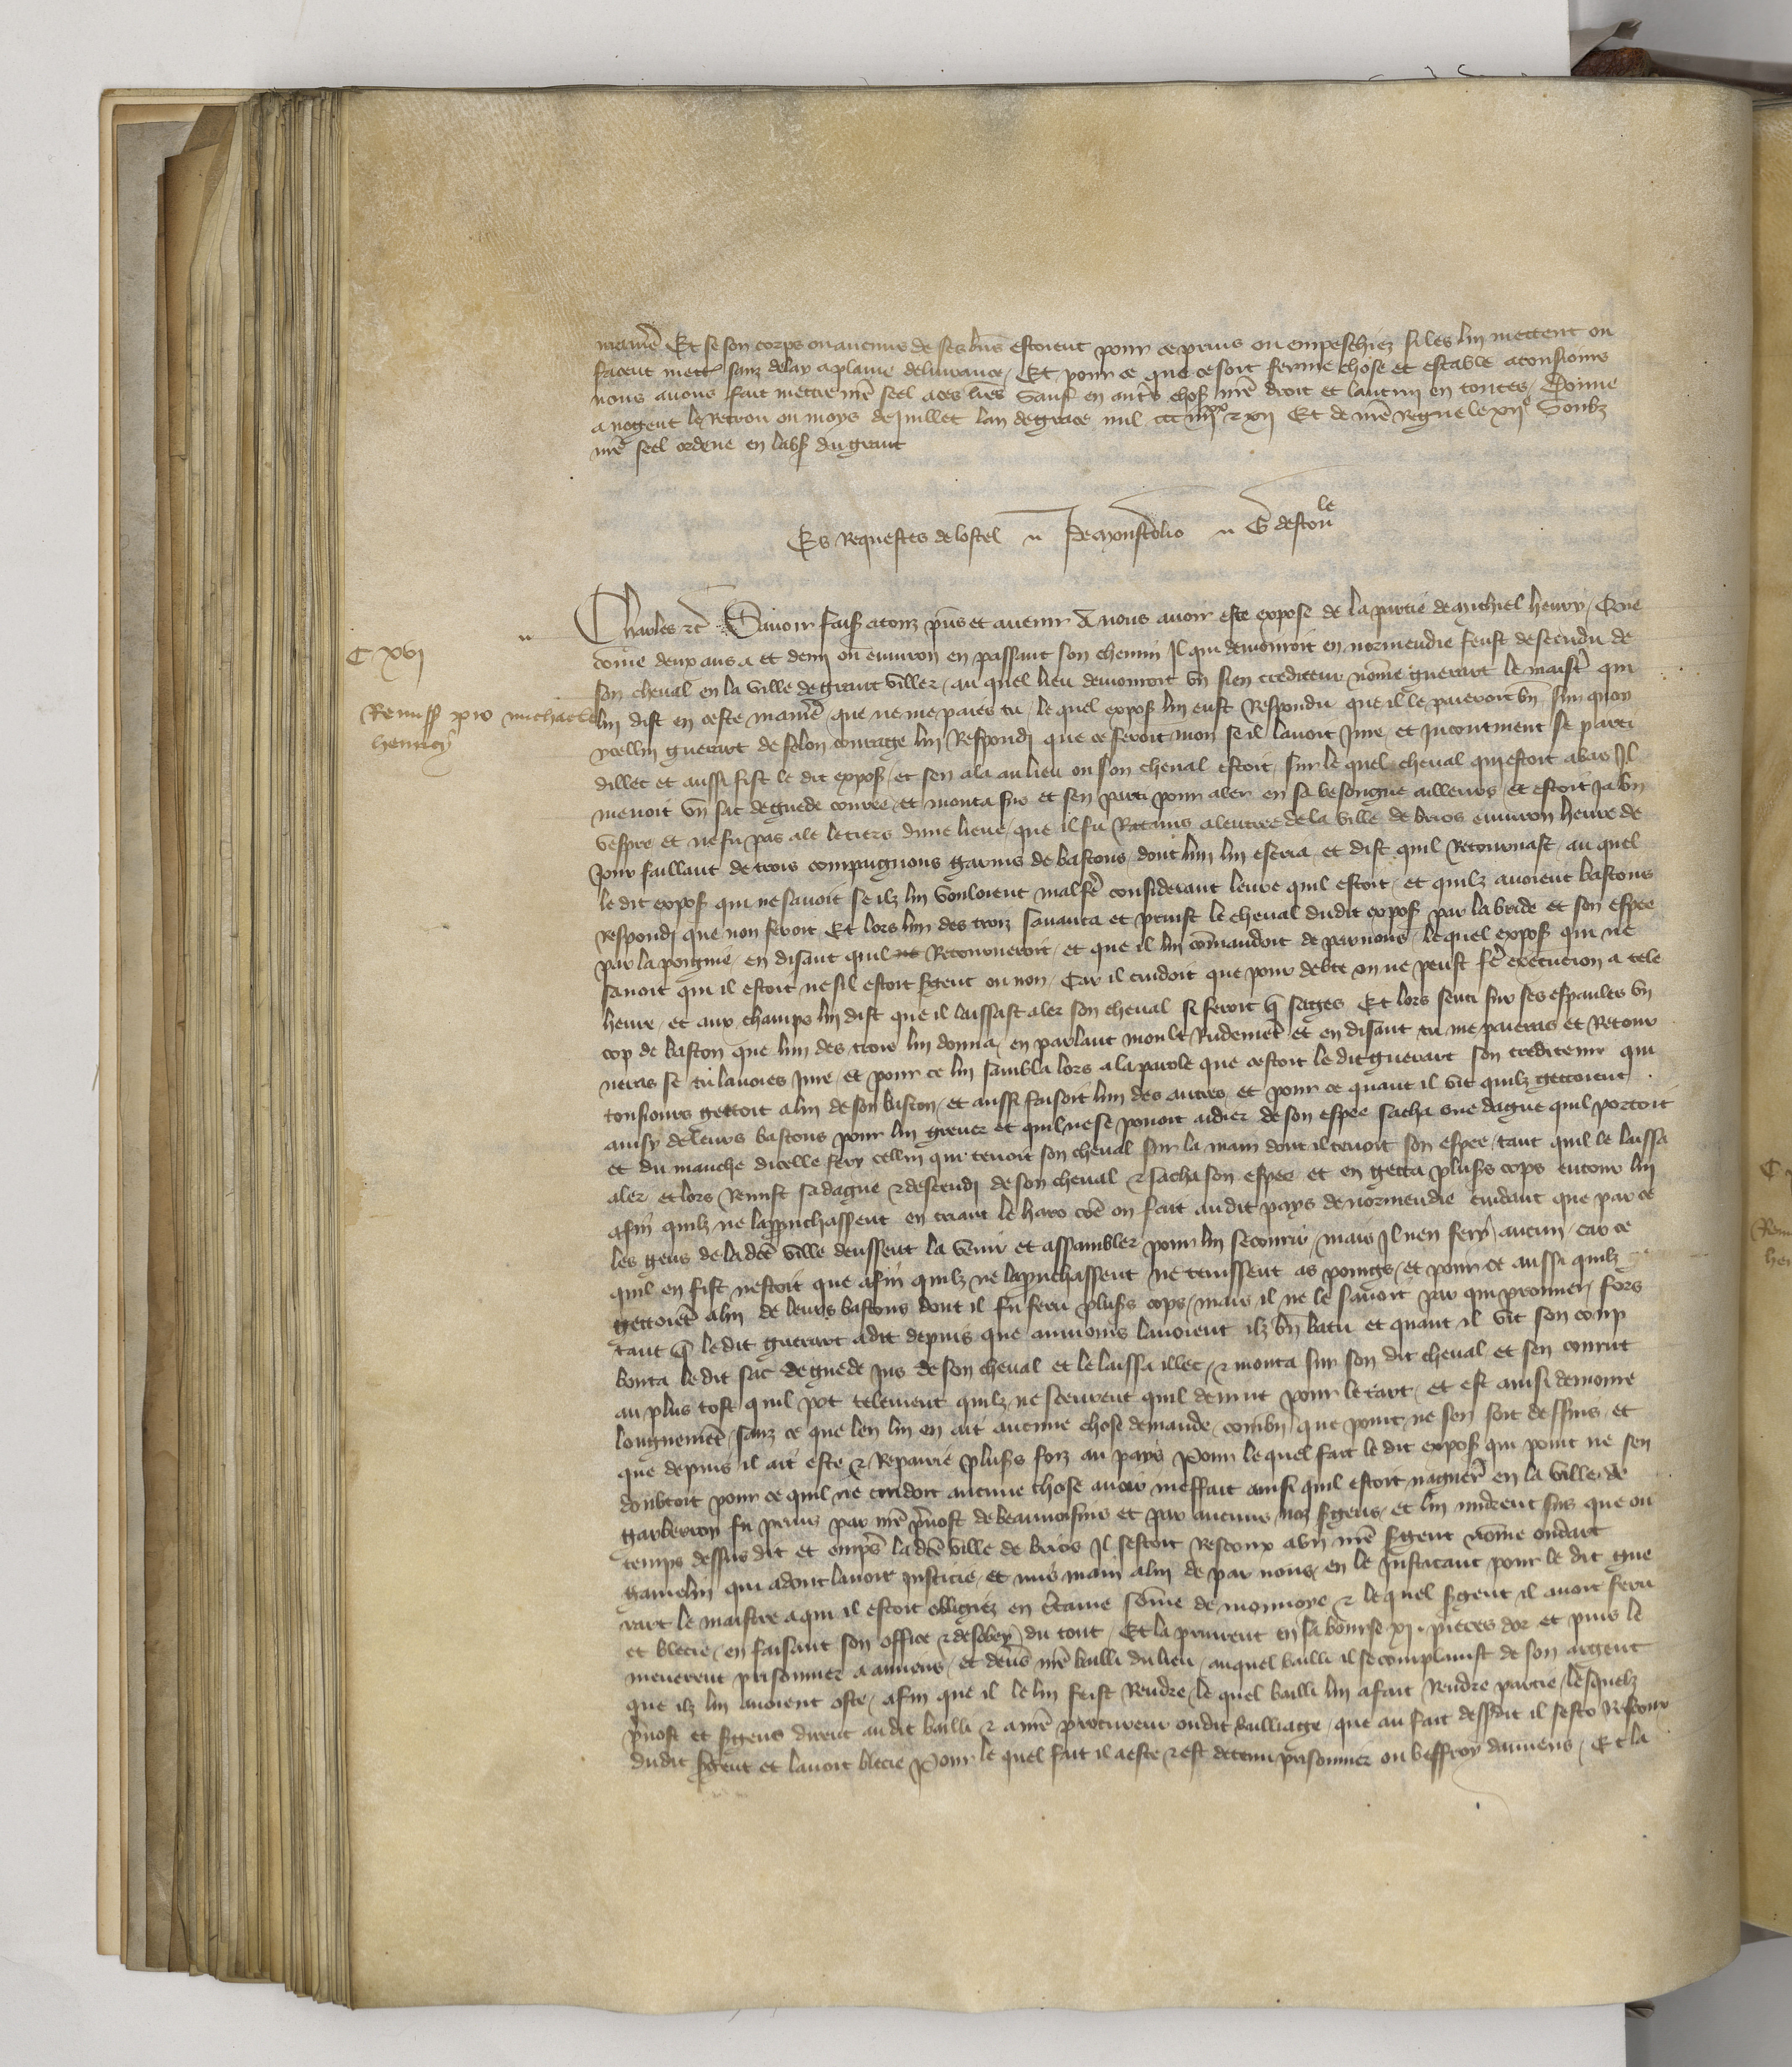 maniere Et se son corps ou aucuns de ses biens estoient pour ce prins ou empeschiez si les lui mettent ou
facent mettre sanz delay a plaine delivrance / Et pour ce que ce soit ferme chose et estable a tousiours
nous avons fait mettre nre seel a ces lres Sauf en autres choses nre droit et lautruy en toutes / Donne
a nogent le Retrou ou moys de Juillet lan de grace mil ccc iiiixx et xii Et de nre regne le xiie Soubz
nre seel ordene en labs du grant
Es Requestes de lostel P de monsterolio G destouteville
C xvi
Remiss pro michaele
henrici
Charles etc Savoir faisons a touz pns et avenir A nous avoir este expose de la partie de Michiel henry / Que
come deux ans a et demi ou environ en passant son chemin Il qui demouroit en normendie feust descendu de
son cheval en la ville de grant viller / au quel lieu demouroit un sien crediteur nome guerart le maistre qui
lui dist en ceste maniere / que ne me paies tu / le quel expos lui eust Respondu que il le paieroit bn sur quoy
ycellui guerart de felon courage lui Respondi que ce feroit mon se il lavoit Jure / et Incontinent se parti
dillec et aussi fist le dit expos / et sen ala au lieu ou son cheval estoit / sur le quel cheval qui estoit abas Il
menoit un sac de guede et monta sur et sen parti pour aler en sa besongne ailleurs / et estoit Ja bn
vespre et ne fu pas ale le tiers dune lieue / que il fu Rataint a lentree de la ville de brios environ heure de
Jour faillant de trois compaignons garnis de bastons / dont lun lui escria / et dist quil Retournast / au quel
le dit expos qui ne savoit se ilz lui vouloient malfere considerant leure quil estoit / et quilz avoient bastons
respondi que non feroit Et lors lun des troiz savanca et prinst le cheval dudit expos par la bride et son espee
par la poignie / en disant quil Retourneroit / et que il lui comandoit de par nous / lequel expos qui ne
savoit qui il estoit ne sil estoit sgent ou non / Car il cuidoit que pour debte on ne peust fe execucion a tele
heure / et aux champs lui dist que il laissast aler son cheval si feroit q sages Et lors senti sur ses espaules un
cop de baston que lun des trois lui donna / en parlant moult Rudement et en disant tu me paieras et Retour
neras se tu lavoies Jure / et pour ce lui sambla lors a la parole que cestoit le dit guerart son crediteur qui
tousiours gettoit a lui de son baston / et aussi faisoit lun des autres / et pour ce quant il vit quilz gettoient
ainsy de leurs bastons pour lui grever et quil ne se povoit aidier de son espee sacha une dague quil portoit
et du manche dicelle fery cellui qui tenoit son cheval sur la main dont il tenoit son espee / tant quil le laissa
aler et lors Remist sa dague et descendi de son cheval et sacha son espee et en getta pluss cops entour lui
afin quilz ne lapprochassent en criant le haro coe on fait audit pays de normendie cuidant que par ce
les gens de la dte ville deussent la venir et assambler pour lui secourir / mais Il nen fery aucun / car ce
quil en fist nestoit que afin quilz ne lapprochassent ne tenissent as poings / et pour ce aussi quilz
gettoient a lui de leurs bastons dont il fu feru pluss cops / mais il ne le savoit par qui prouver / fors
tant q le dit guerart a dit depuis que au moins lavoient ilz bn batu et quant il vit son coup
bouta le dit sac de guede Jus de son cheval et le laissa illec / et monta sur son dit cheval et sen courut
au plus tost quil pot telement quilz ne sceurent quil devint pour le tart / et est ainsi demoure
longuement / sanz ce que len lui en ait aucune chose demande / combn que point ne sen soit deffuis / et
que depuis il ait este et Repairie pluss foiz au pays Pour lequel fait le dit expos qui point ne sen
doubtoit pour ce quil ne cuidoit aucune chose avoir meffait ainsi quil estoit naguere en la ville de
gerberroy fu prins par nre prevost de beauvoisins et par aucuns noz sgens / et lui mirent sus que ou
temps dessus dit et empres la dte ville de brios Il sestoit Rescoux a un nre sgent nome
gamelin qui adont lavoit Justicie / et mis main a lui de par nous / en le Justicant / pour le dit gue
rart le maistre a qui il estoit obligiez en certaine some de monnoye et lequel sgent il avoit feru
et blecie / en faisant son office et desobey du tout / Et la prinrent en sa bourse xi pieces dor et puis le
menerent prisonnier a amiens / et devs nre bailli du lieu / auquel bailli il se complainst de son argent
que ilz lui avoient oste / afin que il le lui feist Rendre / le quel bailli lui a fait Rendre partie / lesquelz
prevost et sgens dirent audit bailli et a nre procureur ou dit bailliage / que au fait dessdit il sesto Rescoux
dudit sgent et lavoit blecie Pour le quel fait il a este et est detenu prisonnier ou beffroy damiens / Et la